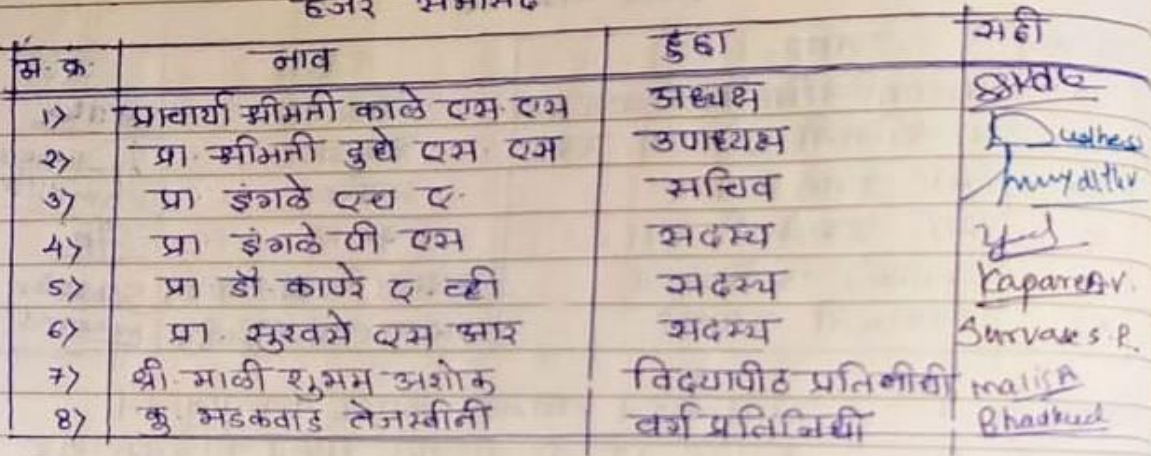 हजर सभासद
अ. क्र. नाव हुद्दा सही
1) प्राचार्या श्रीमती काळे एस. एस अध्यक्ष
2) प्रा. श्रीमती दुधे एस. एस उपाध्यक्ष
3) प्रा इंगळे एच ए. सचिव
4) प्रा इंगळे पी एस सदस्य
5) प्रा डॉ कापरे ए. व्ही सदस्य Kapare A.V.
6) प्रा. सुरवसे एस आर सदस्य Survase S.R.
7) श्री. माळी शुभम अशोक विदयापीठ प्रतिनीधी Mali S A
8) कु भडकवाड तेजस्वीनी वर्ग प्रतिनिधी